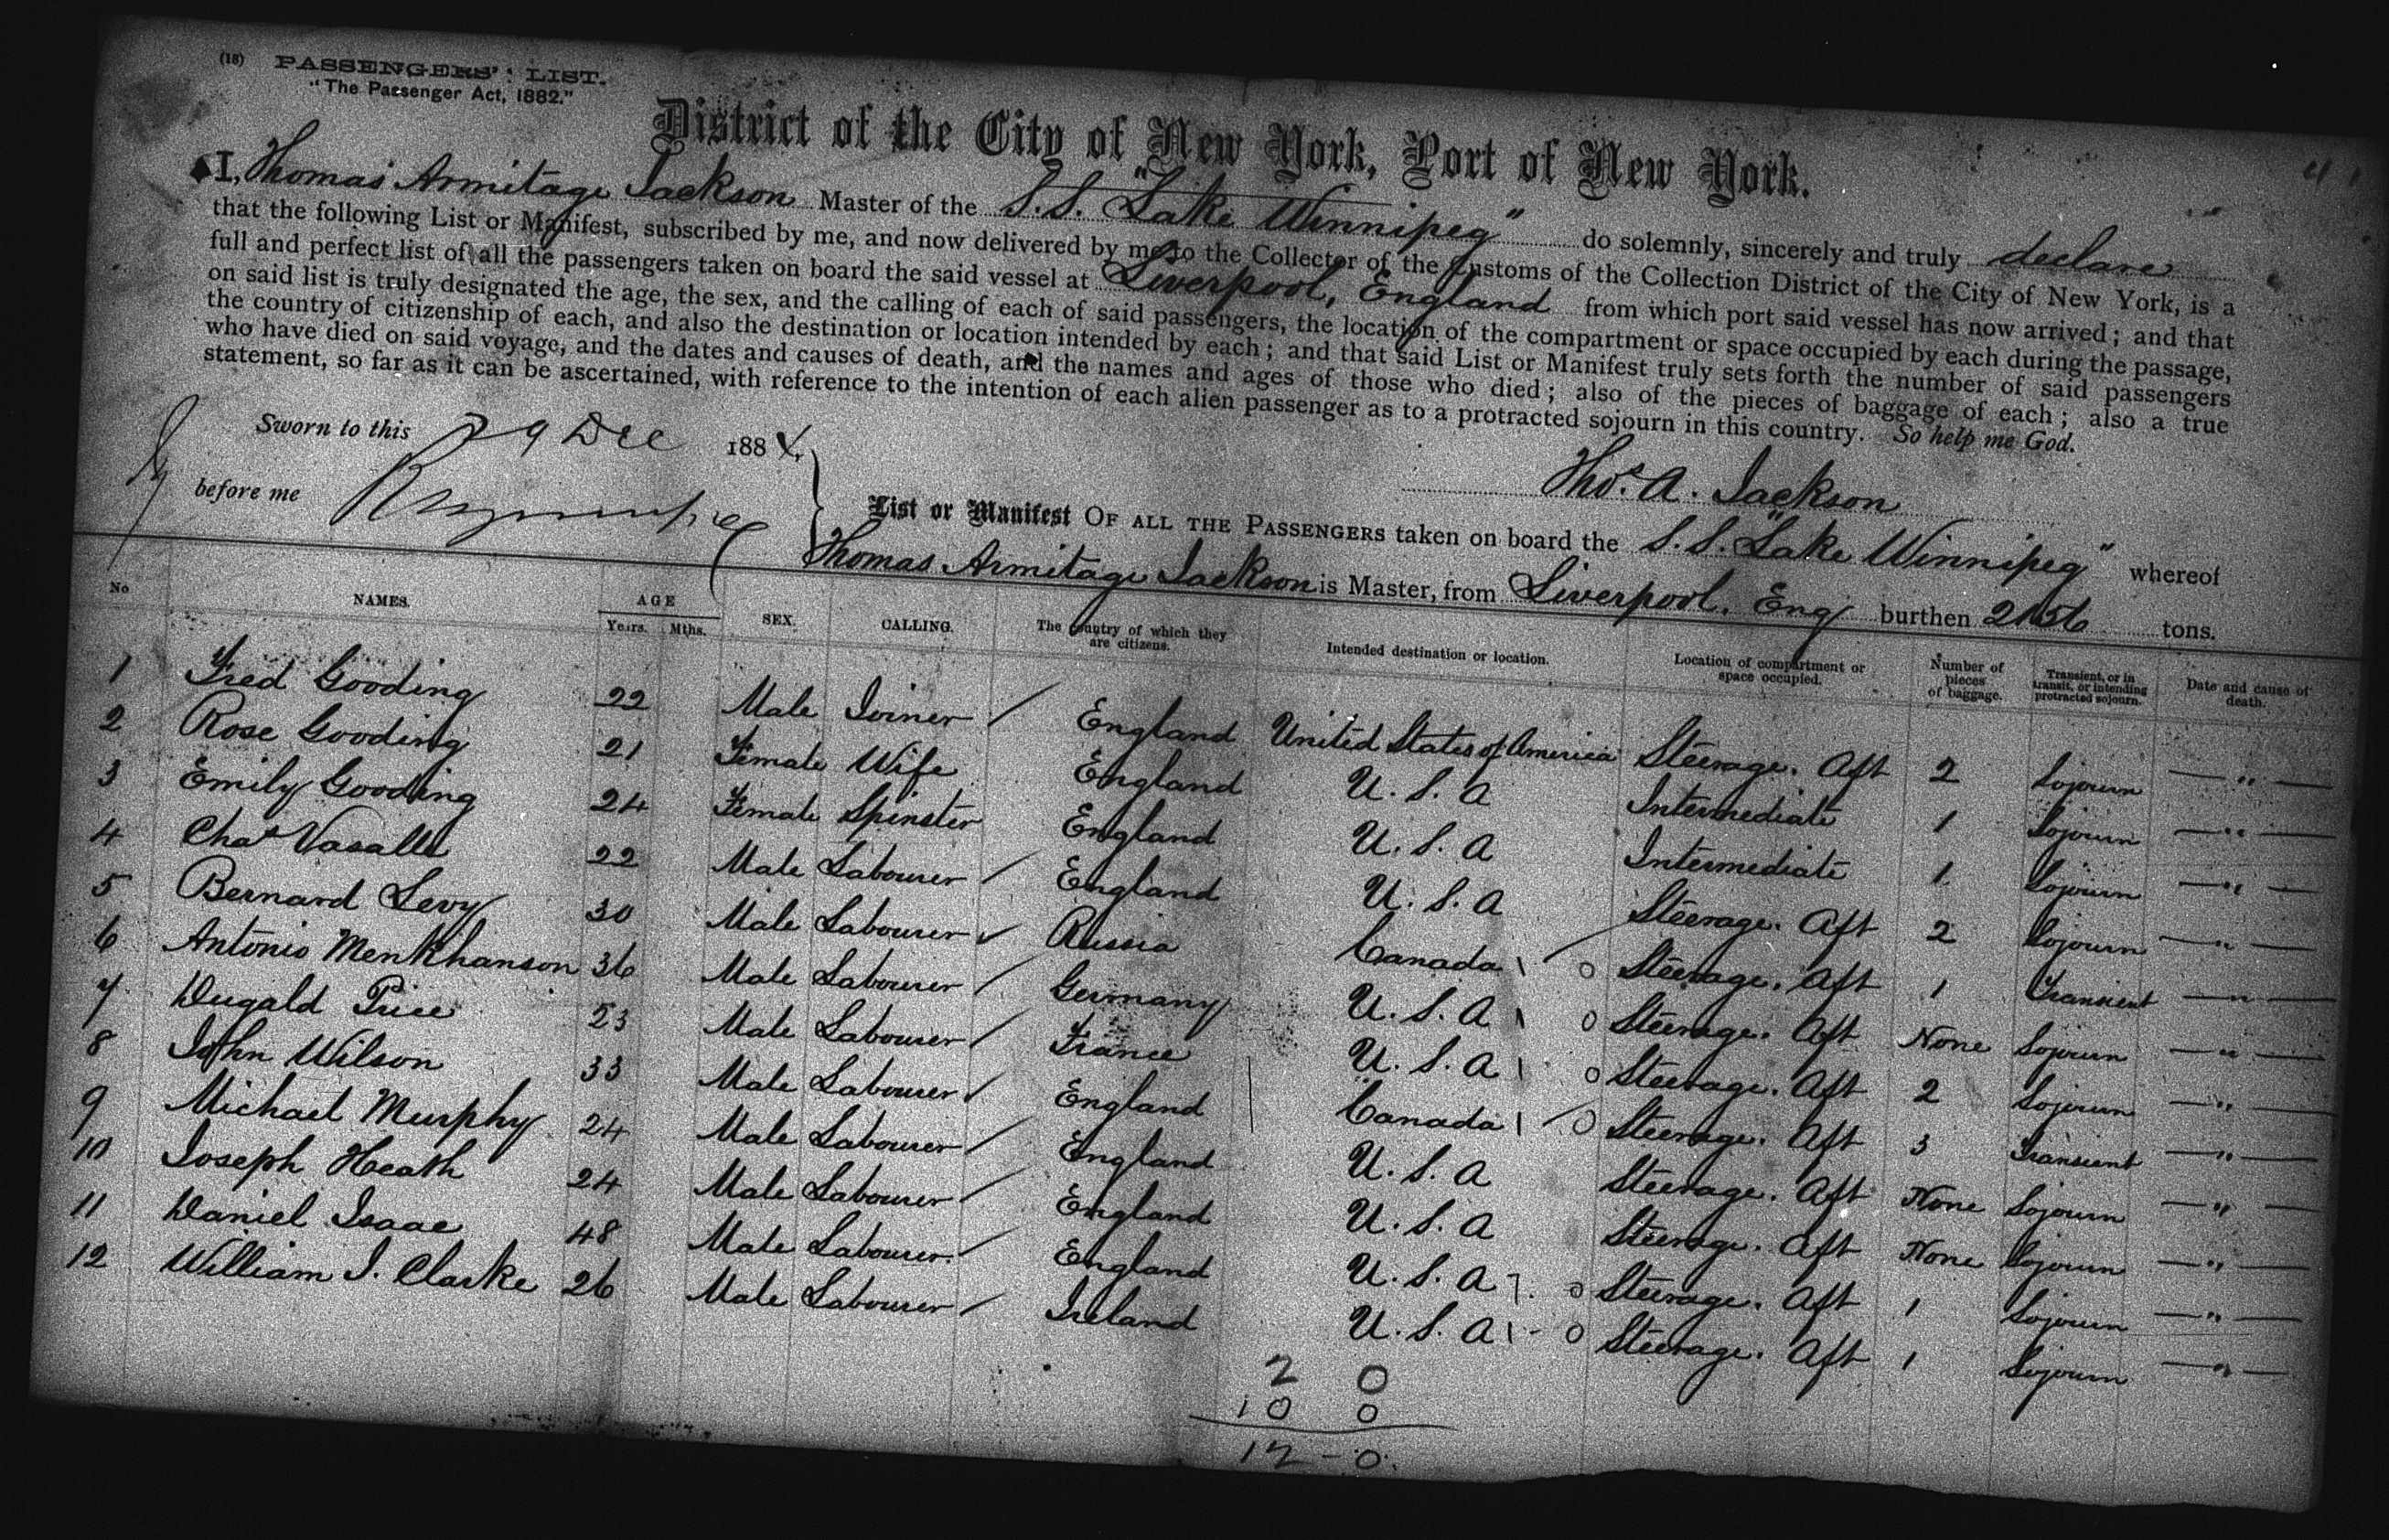 (18) PASSENGERS' LIST.
"The Passenger Act, 1882."
District of the City of New York, Port of New York.
I, Thomas Armitage Jackson Master of the S.S. "Lake Winnipeg" do solemnly, sincerely and truly declare
that the following List or Manifest, subscribed by me, and now delivered by me to the Collector of the Customs of the Collection District of the City of New York, is a
full and perfect list of all the passengers taken on board the said vessel at Liverpool, England from which port said vessel has now arrived; and that
on said list is truly designated the age, the sex, and the calling of each of said passengers, the location of the compartment or space occupied by each during the passage,
the country of citizenship of each, and also the destination or location intended by each; and that said List or Manifest truly sets forth the number of said passengers
who have died on said voyage, and the dates and causes of death, and the names and ages of those who died; also of the pieces of baggage of each; also a true
statement, so far as it can be ascertained, with reference to the intention of each alien passenger as to a protracted sojourn in this country. So help me God.
Sworn to this 29 Dec 1884,
Thos. A. Jackson
before me
List or Manifest OF ALL THE PASSENGERS taken on board the S.S. "Lake Winnipeg" whereof
Thomas Armitage Jackson is Master, from Liverpool, Eng burthen tons.
No NAMES. AGE Years. Mths. SEX. CALLING. The Country of which they are citizens. Intended destination or location. Location of compartment or space occupied. Number of pieces of baggage. Transient, or in transit, or intending protracted sojourn. Date and cause of death.
1 Fred Gooding 22 Male Joiner England United States of America Steerage. Aft 2 Sojourn — " —
2 Rose Gooding 21 Female Wife England U. S. A Intermediate 1 Sojourn — " —
3 Emily Gooding 24 Female Spinster England U. S. A Intermediate 1 Sojourn — " —
4 Chas 22 Male Labourer England U. S. A Steerage. Aft 2 Sojourn — " —
5 Bernard Levy 30 Male Labourer Russia Canada Steerage. Aft 1 Transient — " —
6 Antonio Menkhanson 36 Male Labourer Germany U. S. A Steerage. Aft None Sojourn — " —
7 Dugald Price 23 Male Labourer France U. S. A Steerage. Aft 2 Sojourn — " —
8 John Wilson 33 Male Labourer England Canada Steerage. Aft 3 Transient — " —
9 Michael Murphy 24 Male Labourer England U. S. A Steerage. Aft None Sojourn — " —
10 Joseph Heath 24 Male Labourer England U. S. A Steerage. Aft None Sojourn — " —
11 Daniel Isaac 48 Male Labourer England U. S. A Steerage. Aft 1 Sojourn — " —
12 William J. Clarke 26 Male Labourer Ireland U. S. A Steerage. Aft 1 Sojourn — " —
2 0
10 0
12 - 0.